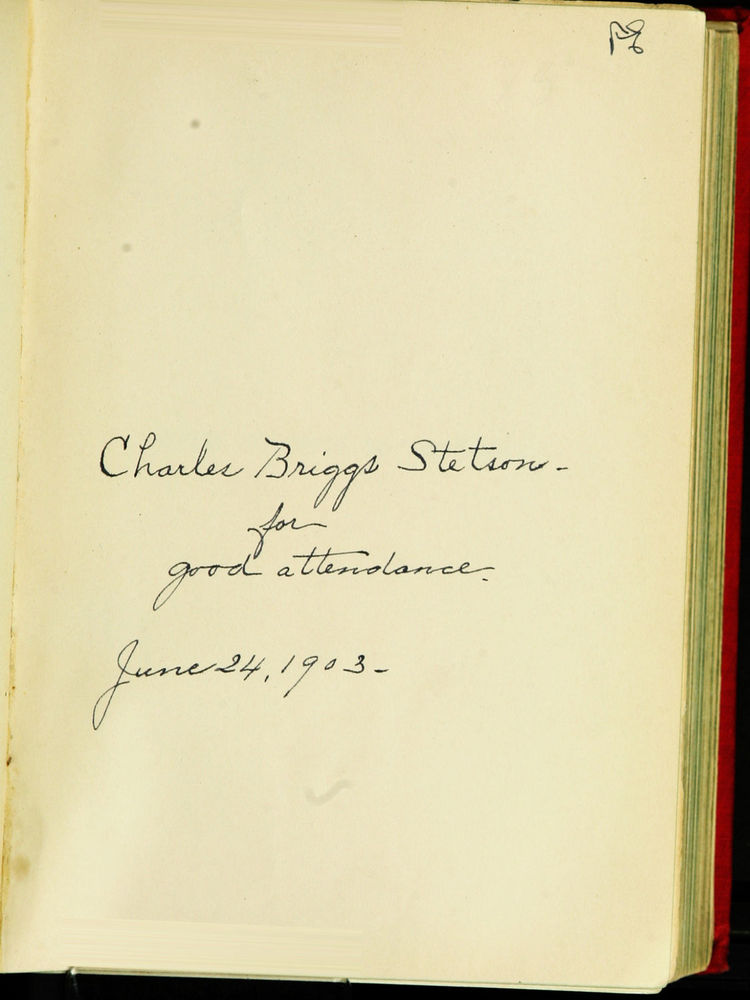 Charles Briggs Stetson-
for
good attendance.
June 24, 1903-